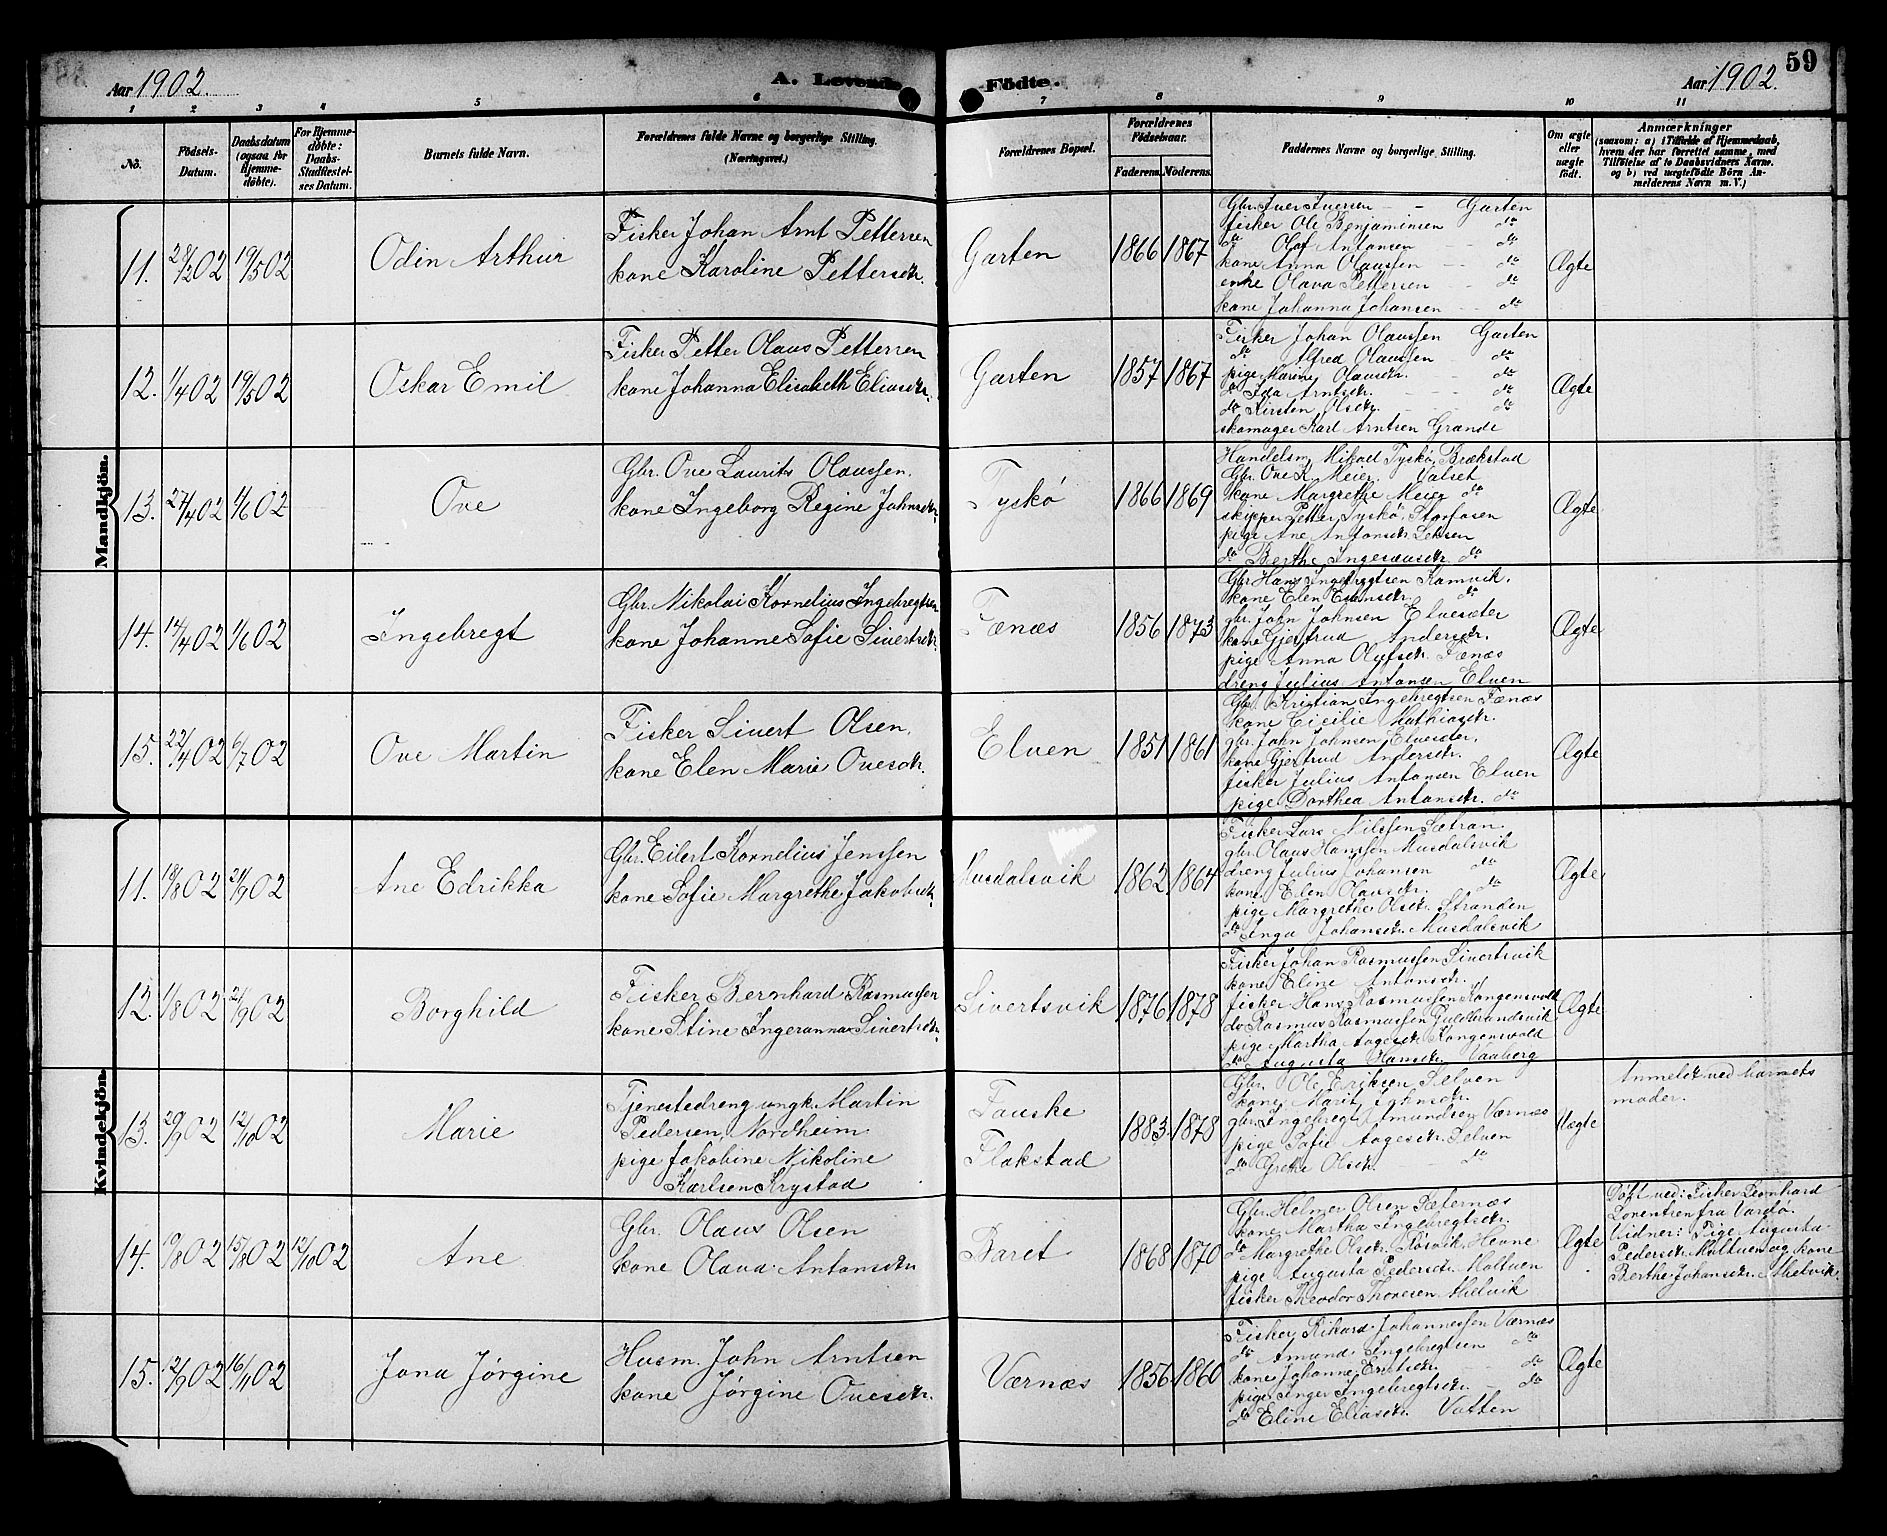 59
Aar 1902.
A. Levende
Födte.
Aar 1902.
1 2 3 4 5 6 7 8 9 10 11
No.
Födsels-Datum.
Daabsdatum (ogsaa for Hjemmedöbte).
For Hjemmedöbte: Daabs-Stadfæstelses Datum.
Barnets fulde Navn.
Forældrenes fulde Navne og borgerlige Stilling.
(Næringsvei.)
Forældrenes Bopæl.
Forældrenes Födselsaar.
Faderens. Moderens.
Faddernes Navne og borgerlige Stilling.
Om ægte eller uægte födt.
Anmærkninger
(saasom: a) i Tilfælde af Hjemmedaab, hvem der har forrettet samme, med Tilföielse af to Daabsvidners Navne, og b) ved uægtefödte Börn Anmelderens Navn m. V.)
Mandkjön.
11. 28/2 02 19/5 02
Odin Arthur
Fisker Johan Arnt Pettersen
kone Karoline Pettersdtr.
Garten
1866 1867
Gbr. Iver Iversen - - Garten
fisker Ole Benjaminsen do
do Olaf Antonsen - - do
kone Anna Olaussen - - do
enke Olava Pettersen - - do
kone Johanna Johansen - - do
Ægte
12. 1/4 02 19/5 02
Oskar Emil
Fisker Petter Olaus Pettersen
kone Johanna Elisabeth Eliasdtr.
Garten
1857 1867
Fisker Johan Olaussen Garten
do Alfred Olaussen - do
pige Marine Olausdtr. - - do
do Ida Arntsdtr. - - - do
do Kirsten Olsdtr. - - - do
skomager Karl Arntsen Grande
Ægte
13. 27/4 02 1/6 02
Ove
Gbr. Ove Laurits Olaussen.
kone Ingeborg Regine Johnsdtr.
Tyskø
1866 1869
Handelsm. Mikael Tyskø, Brækstad
Gbr. Ove K. Meier, Valset
kone Margrethe Meier do
skipper Petter Tyskø, Storfosen
pige Ane Antonsdtr. Leksen
do Berthe do
Ægte
14. 14/4 02 1/6 02
Ingebregt
Gbr. Nikolai Kornelius Ingebregtsen
kone Johanne Sofie Sivertsdtr.
Fænæs
1856 1873
Gbr. Hans Ingebregtsen
kone Elen do
gbr. John Johnsen Elvesæter
kone Gjertrud Andersdtr.
pige Anna Olufsdtr. Fænæs
dreng Julius Antonsen Elven
Ægte
15. 22/4 02 6/7 02
Ove Martin
Fisker Sivert Olsen,
kone Elen Marie Ovesdtr.
Elven
1851 1861
Gbr. Kristian Ingebregtsen Fænæs
kone Cicilie Mathiasdtr.
gbr. John Johnsen, Elvesæter,
kone Gjertrud Andersdtr.
fisker Julius Antonsen Elven
pige Dorthea Antonsdtr. do
Ægte
Kvindekjön.
11. 18/8 02 21/9 02
Ane Edrikka
Gbr. Eilert Kornelius Jenssen
kone Sofie Margrethe Jakobsdtr.
Musdalsvik
1862 1864
Fisker Lars Nilssen Sætran
gbr. Olaus Hanssen Musdalsvik
dreng Julius Johansen do
kone Elen Olausdtr. do
pige Margrethe Olsdtr. Stranden
do Inga Johansdtr. Musdalsvik
Ægte
12. 1/8 02 21/9 02
Borghild
Fisker Bernhard Rasmussen
kone Stine Ingeranna Sivertsdtr.
Sivertsvik
1876 1878
Fisker Johan Rasmussen Sivertsvik
kone Eline Antonsdtr.
fisker Hans Rasmussen Kongensvold
do Rasmus Rasmussen Guldbrandsvik
pige Martha Aagesdtr. Kongensvold
do Augusta Hansdtr. Vaaberg
Ægte
13. 29/9 02 12/10 02
Marie
Tjenestedreng ungk. Martin
Pedersen, Nordheim
pige Jakobine Nikoline
Karlsen Krystad
Fauske
Flakstad
1883 1878
Gbr. Ole Eriksen Selven
kone Marit Johnsdtr.
gbr. Ingebregt Amundsen Værnæs
pige Sofie Aagesdtr. Selven
do Grethe Olsdtr. - - do
Uægte
Anmeldt ved barnets
moder.
14. 19/8 02 15/8 02 12/10 02
Ane
Gbr. Olaus Olsen
kone Olava Antonsdtr
Baret
1868 1870
Gbr. Helmer Olsen
kone Martha Ingebregtsdtr.
do Margrethe Olsdtr. Røsvik, Hevne
pige Augusta Pedersdtr. Moltuen
fisker Theodor Thoresen Melvik
Ægte
Döbt ved: Fisker Leonhard
Lorentsen fra Vardø.
Vidner: Pige Augusta
Pedersdtr. Moltuen og kone
Berthe Johansdtr. Melvik.
15. 12/9 02 16/11 02
Jona Jørgine
Husm. John Arntsen
kone Jørgine Ovesdtr.
Værnæs
1856 1860
Fisker Rikard Johannessen Værnæs
do Amund Ingebregtsen do
kone Johanne Eriksdtr. - do
pige Inger Ingebregtsdtr. - do
do Eline Eliasdtr. Vatten
Ægte